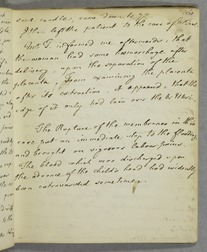 I then left the patient to the care of
Mr T informed me afterwards, that
the woman had some hæmorrhage after
delivery, upon the separation of the
placenta. Upon examining the placenta
after its extraction, it appeared, that the
edge of it only had been over the os uteri.
The Rupture of the membranes in this
case put an immediate stop to the flooding
and brought on vigorous labour pains.
The blood which was discharged upon
the advance of the child's head had evidently
been extravasated sometime.